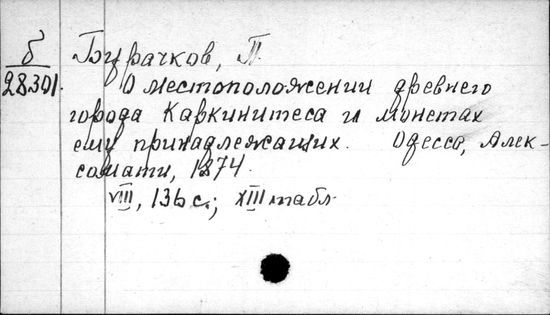 б
28301.
Бурачков, П.
О местоположении древнего
города Каркинитеса и монетах
ему принадлежащих. Одесса, Алек-
сомати, 1874.
VIII, 136 с.; XIII табл.